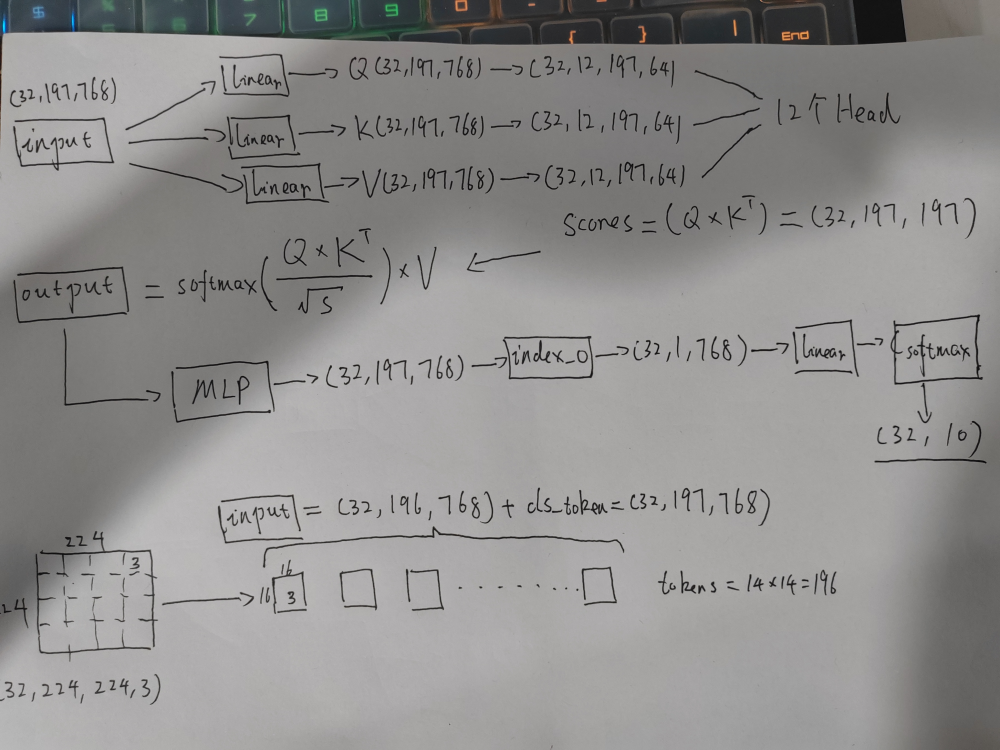 $ 7 8 9 0 { } | End
(32,197,768)
input
Linear → Q(32,197,768) → (32,12,197,64)
Linear → K(32,197,768) → (32,12,197,64)
Linear → V(32,197,768) → (32,12,197,64)
12个Head
Scores = (Q × K^T) = (32,197,197)
output = softmax( Q × K^T / √s ) × V
MLP → (32,197,768) → index_0 → (32,1,768) → Linear → softmax
(32, 10)
input = (32,196,768) + cls_token = (32,197,768)
224
3
24
16
16 3
tokens = 14×14=196
32,224,224,3)